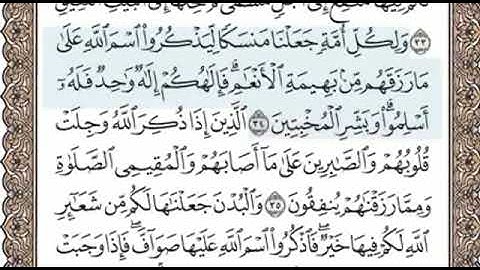 ﴿٣٣﴾ وَلِكُلِّ أُمَّةٍ جَعَلْنَا مَنسَكًا لِّيَذْكُرُوا۟ ٱسْمَ ٱللَّهِ عَلَىٰ
مَا رَزَقَهُم مِّنۢ بَهِيمَةِ ٱلْأَنْعَـٰمِ ۗ فَإِلَـٰهُكُمْ إِلَـٰهٌ وَٰحِدٌ فَلَهُۥٓ
أَسْلِمُوا۟ ۗ وَبَشِّرِ ٱلْمُخْبِتِينَ ﴿٣٤﴾ ٱلَّذِينَ إِذَا ذُكِرَ ٱللَّهُ وَجِلَتْ
قُلُوبُهُمْ وَٱلصَّـٰبِرِينَ عَلَىٰ مَآ أَصَابَهُمْ وَٱلْمُقِيمِى ٱلصَّلَوٰةِ
وَمِمَّا رَزَقْنَـٰهُمْ يُنفِقُونَ ﴿٣٥﴾ وَٱلْبُدْنَ جَعَلْنَـٰهَا لَكُم مِّن شَعَـٰٓئِرِ
ٱللَّهِ لَكُمْ فِيهَا خَيْرٌ ۖ فَٱذْكُرُوا۟ ٱسْمَ ٱللَّهِ عَلَيْهَا صَوَآفَّ ۖ فَإِذَا وَجَبَتْ